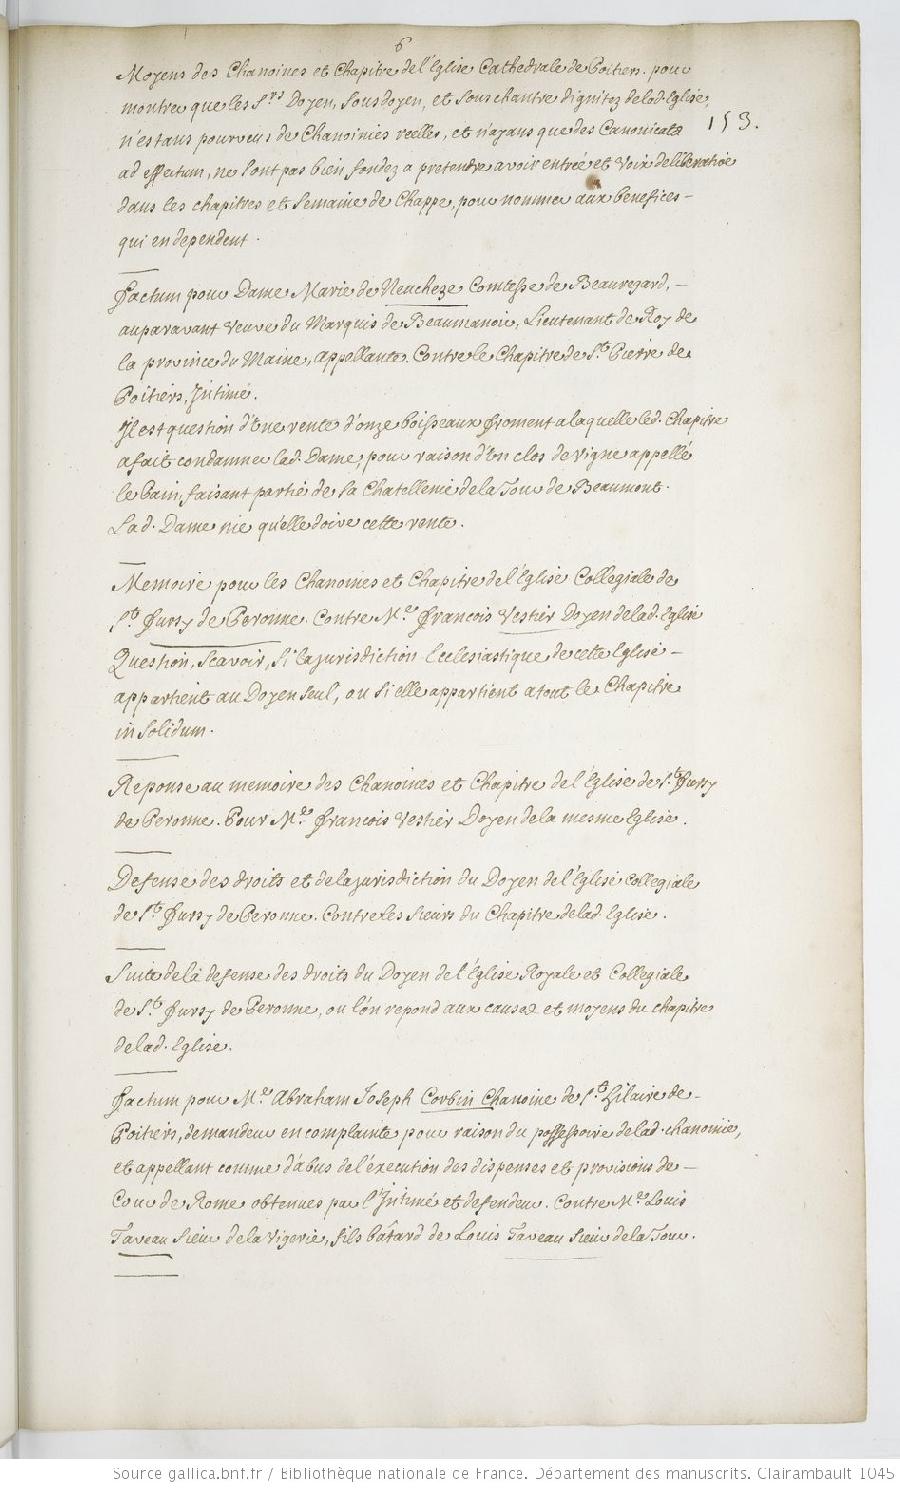 6
Moyens des Chanoines et Chapitre de l'Eglise Cathedrale de Poitiers. pour
montrer que les Srs Doyen, sousdoyen, et souschantre dignitez de lad. Eglise,
n'estans pourveus de Chanoinies reelles, et n'ayans que des Canonicats
153.
ad effectum, ne sont pas bien fondez a pretendre avoir entrée et voix deliberative
dans les chapitres et semaine de Chappe, pour nommer aux benefices-
qui en dependent.
Factum pour Dame Marie de Neucheze Comtesse de Beauregard,-
auparavant veuve du Marquis de Beaumanoir, Lieutenant de Roy de
la province du Maine, appellante. Contre le Chapitre de St. Pierre de
Poitiers, Intimé.
Il est question d'une rente d'onze boisseaux froment a laquelle led. Chapitre
a fait condamner lad. Dame, pour raison d'un clos de vigne appellé
le Bain, faisant partie de la Chatellenie de la Tour de Beaumont.
Lad. Dame nie qu'elle doive cette rente.
Memoire pour les Chanoines et Chapitre de l'Eglise Collegiale de
St. Fursy de Peronne. Contre Me. François Vestier Doyen de lad. Eglise
Question, Scavoir, Si la jurisdiction Ecclesiastique de cette Eglise-
appartient au Doyen seul, ou si elle appartient a tout le Chapitre
in solidum.
Reponse au memoire des Chanoines et Chapitre de l'Eglise de St. Fursy
de Peronne. Pour Me. François Vestier Doyen de la mesme Eglise.
Defense des droits et de la jurisdiction du Doyen de l'Eglise collegiale
de St. Fursy de Peronne. Contre les sieurs du Chapitre de lad. Eglise.
Suite de la defense des droits du Doyen de l'Eglise Royale et Collegiale
de St. Fursy de Peronne, ou l'on repond aux causes et moyens du chapitre
de lad. Eglise.
Factum pour Me. Abraham Joseph Corbin Chanoine de St. Hilaire de-
Poitiers, demandeur en complainte pour raison du possessoire de lad. chanoinie,
et appellant comme d'abus de l'execution des dispenses et provisions de-
Cour de Rome obtenues par l'Intimé et defendeur. Contre Me. Louis
Taveau sieur de la Vigerie, fils bâtard de Louis Taveau sieur de la Tour.
Source gallica.bnf.fr / Bibliothèque nationale de France. Département des manuscrits. Clairambault 1045